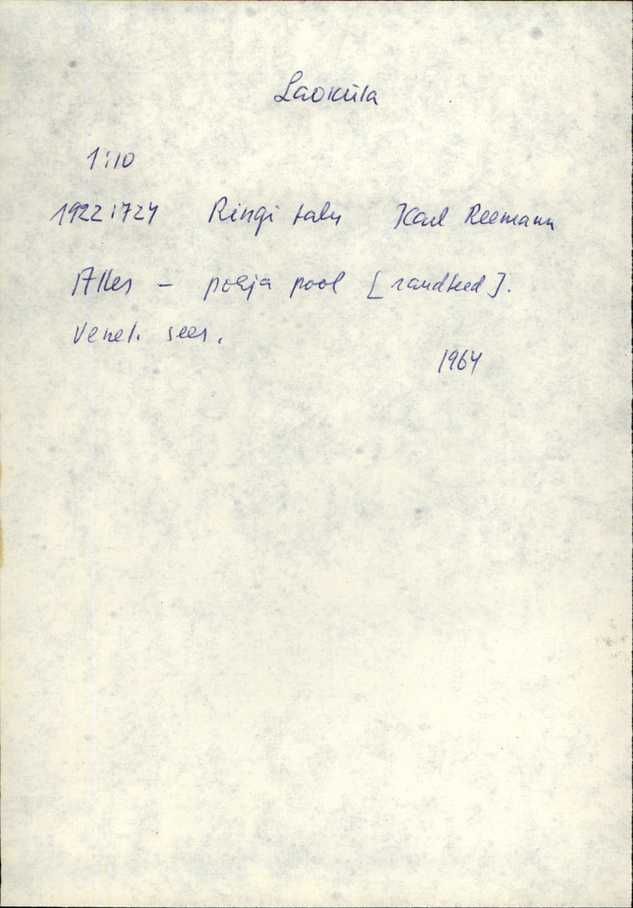 Laoküla
1:10
1922:724 Ringi talu Karl Reemann
Alles - põhja pool [randteed].
Venel. sees.
1964